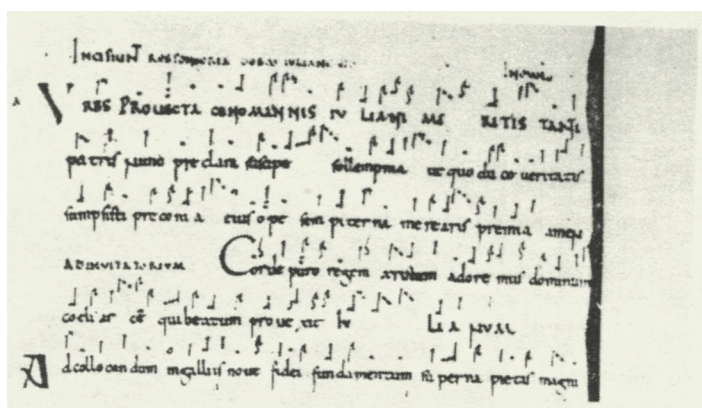 INCIPIUNT RESPONSORIA
IN NOVIS
VRBS PROVECTA CENOMANNIS IV LIANI ME RITIS TANTI
patris nunc pre clara suscipe sollempnia ut quo duce veritatis
sumpsisti preconi a eius o pe sempiterna merearis premia amen
AD INVITATORIUM Corde puro regem adore mus dominum
qui beatum pro ve xit Iu LI A NUM
Ad collocan dum in galliis nove fidei fun damentum su perna pietas magni